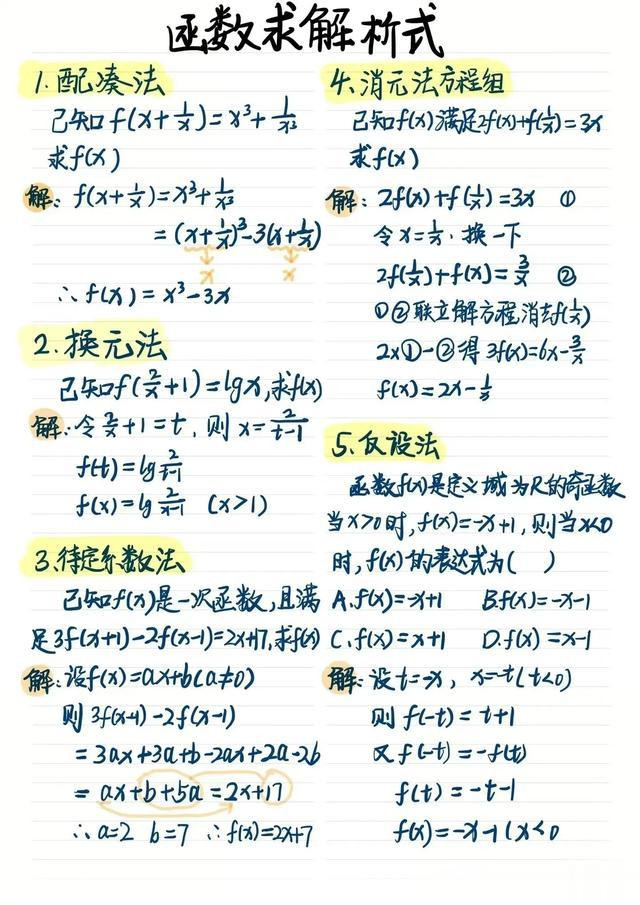 函数求解析式
1.配凑法
已知f(x+1/x)=x³+1/x³
求f(x)
解:f(x+1/x)=x³+1/x³
=(x+1/x)³-3(x+1/x)
x x
∴f(x)=x³-3x
2.换元法
已知f(2/x+1)=lgx,求f(x)
解:令2/x+1=t,则x=2/(t-1)
f(t)=lg 2/(t-1)
f(x)=lg 2/(x-1) (x>1)
3.待定系数法
已知f(x)是一次函数,且满
足3f(x+1)-2f(x-1)=2x+17,求f(x)
解:设f(x)=ax+b(a≠0)
则3f(x+1)-2f(x-1)
=3ax+3a+b-2ax+2a-2b
=ax+b+5a=2x+17
∴a=2 b=7 ∴f(x)=2x+7
4.消元法方程组
已知f(x)满足2f(x)+f(1/x)=3x
求f(x)
解:2f(x)+f(1/x)=3x ①
令x=1/x.换一下
2f(1/x)+f(x)=3/x ②
①②联立解方程,消去f(1/x)
2x①-②得3f(x)=6x-3/x
f(x)=2x-1/x
5.反设法
函数f(x)是定义域为R的奇函数
当x>0时,f(x)=-x+1,则当x<0
时,f(x)的表达式为( )
A.f(x)=-x+1 B.f(x)=-x-1
C.f(x)=x+1 D.f(x)=x-1
解:设t=-x,x=-t(t<0)
则f(-t)=t+1
又f(-t)=-f(t)
f(t)=-t-1
f(x)=-x-1(x<0